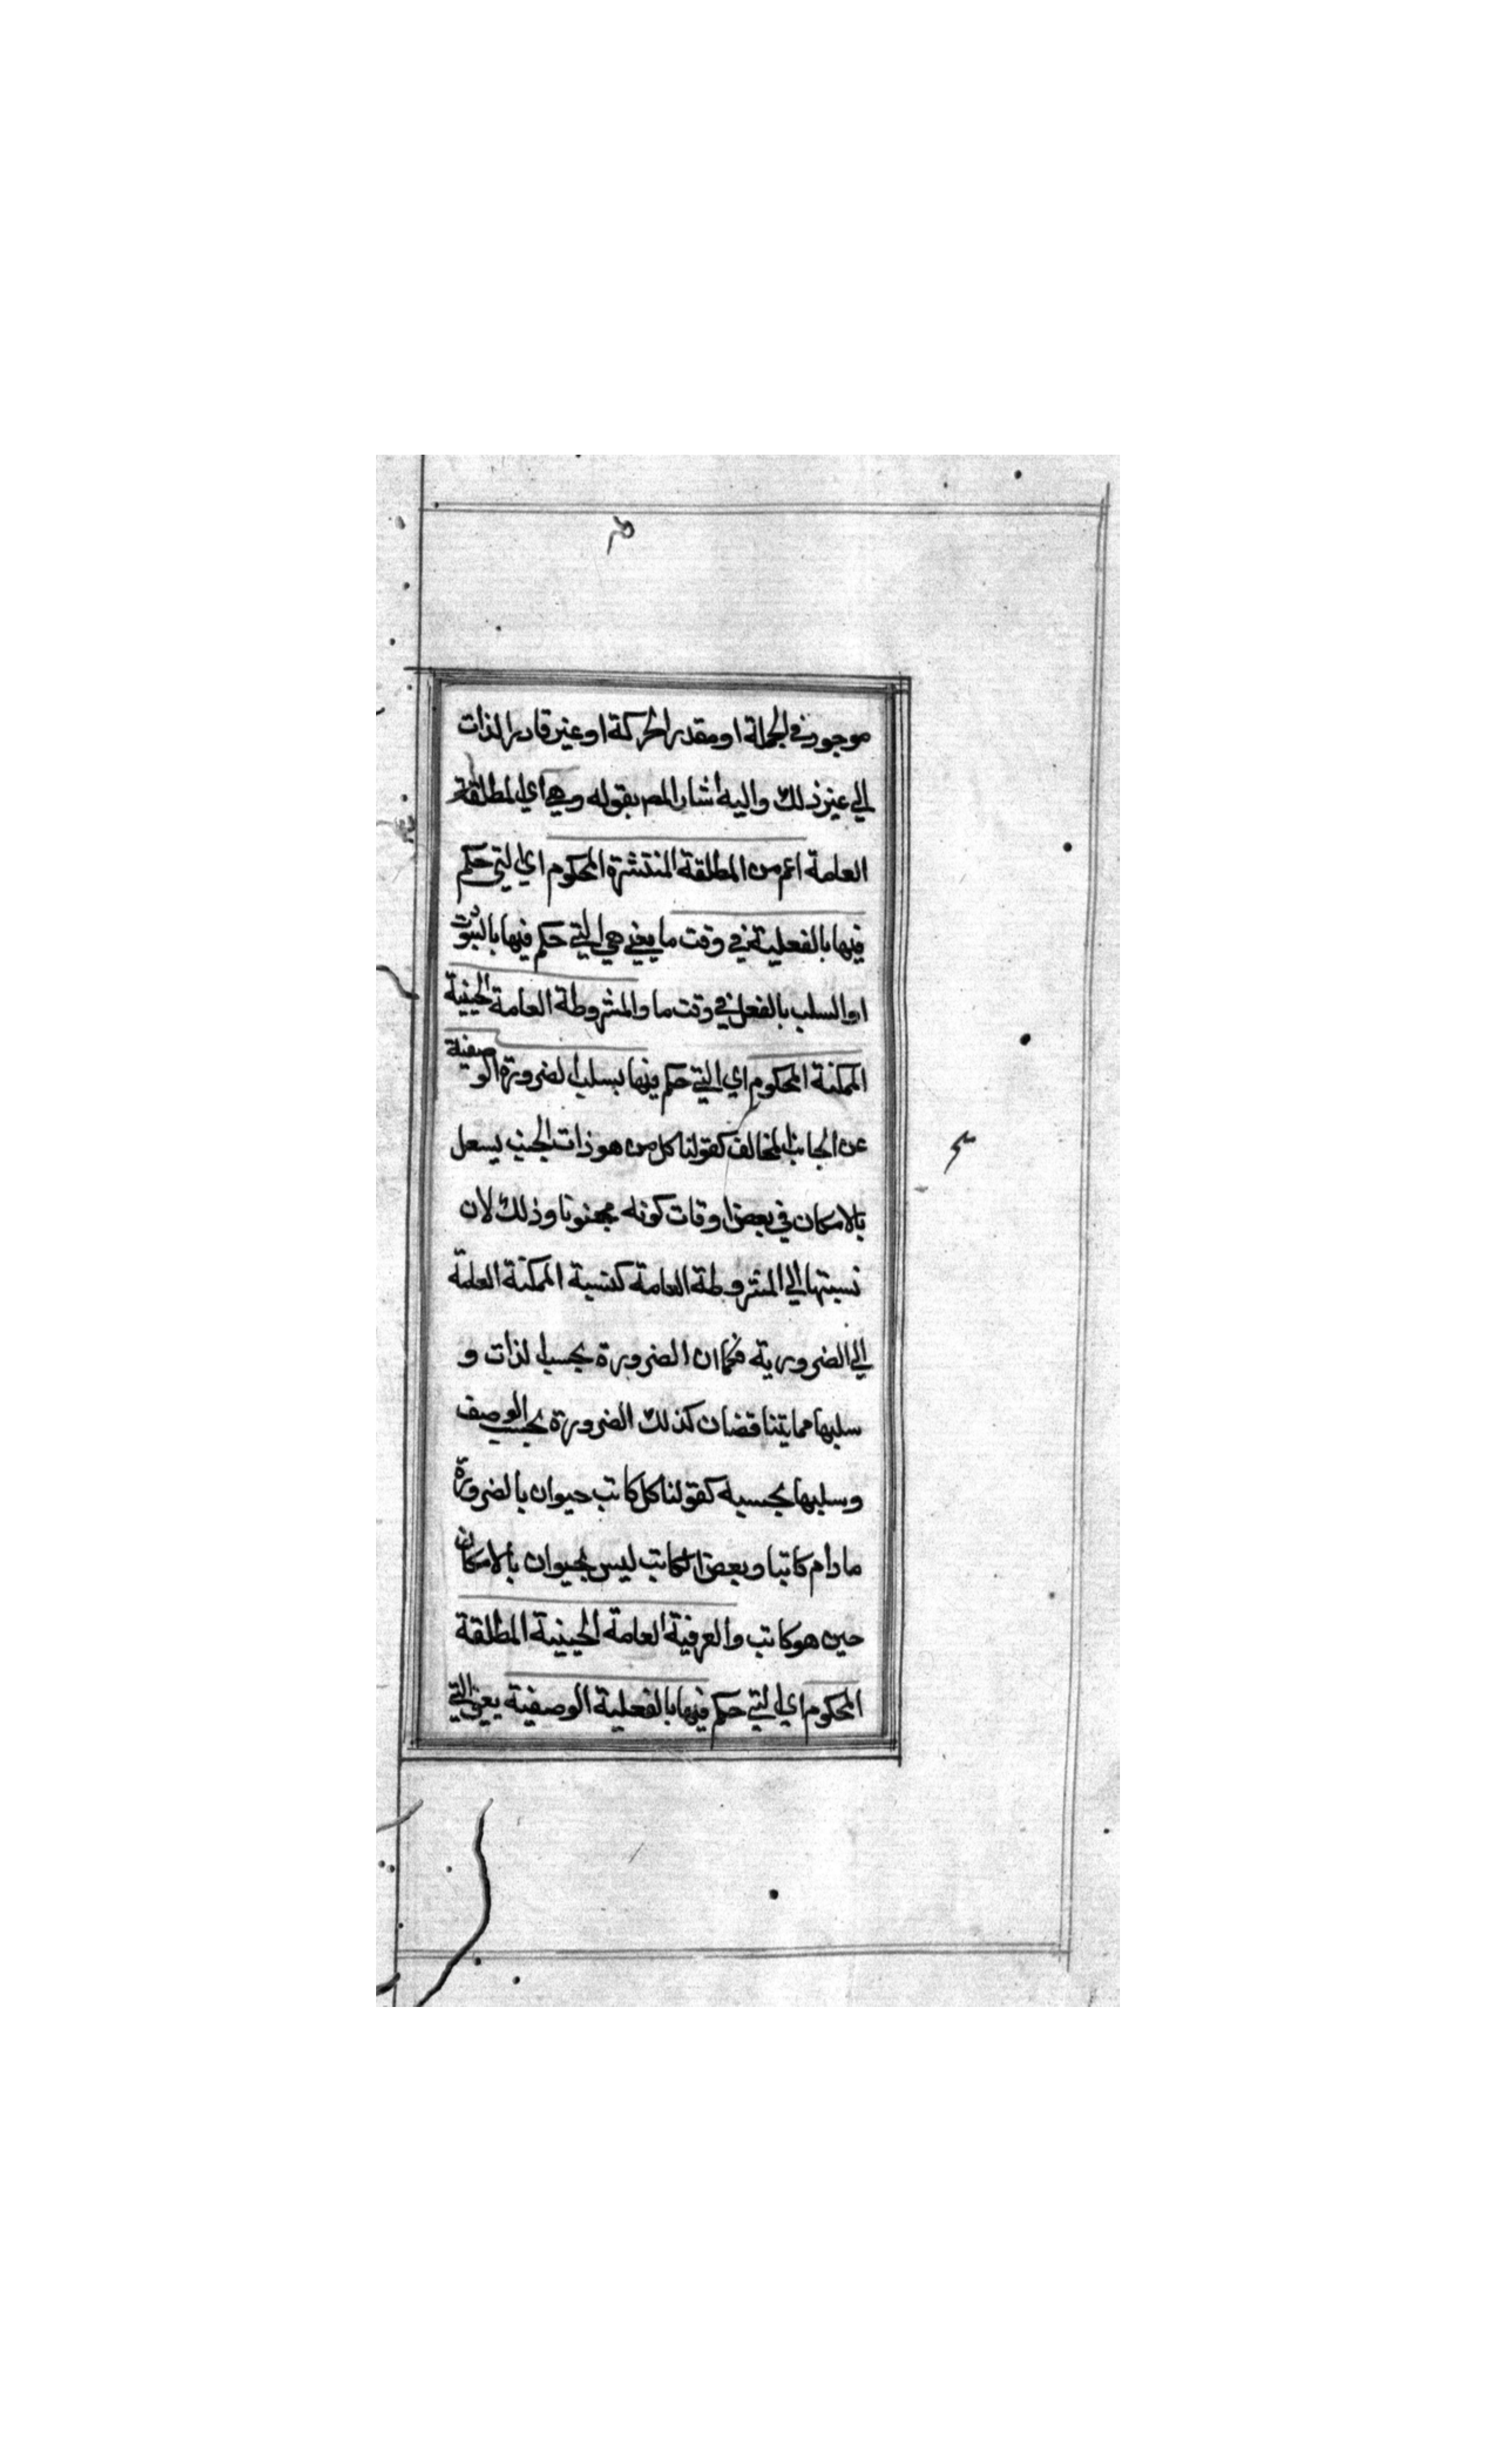 موجود في الجملة او مقدر الحركة او غير قادر الذات
الي غير ذلك واليه اشار المص بقوله وهي اي المطلقة
العامة اعم من المطلقة المنتشرة المحكوم اي التي حكم
فيها بالفعلية في وقت ما يعني هي التي حكم فيها بالثبوت
او السلب بالفعل في وقت ما والمشروطة العامة الحينية
الممكنة المحكوم اي التي حكم فيها بسلب الضرورة الوصفية
عن الجانب المخالف كقولنا كل من هو ذات الجنب يسعل
بالامكان في بعض اوقات كونه مجنونا وذلك لان
نسبتها الي المشروطة العامة كنسبة الممكنة العامة
الي الضرورية فكما ان الضرورة بحسب الذات و
سلبها مما يتناقضان كذلك الضرورة بحسب الوصف
وسلبها بحسبه كقولنا كل كاتب حيوان بالضرورة
ما دام كاتبا وبعض الكاتب ليس بحيوان بالامكان
حين هو كاتب والعرفية العامة الحينية المطلقة
المحكوم اي التي حكم فيها بالفعلية الوصفية يعني التي